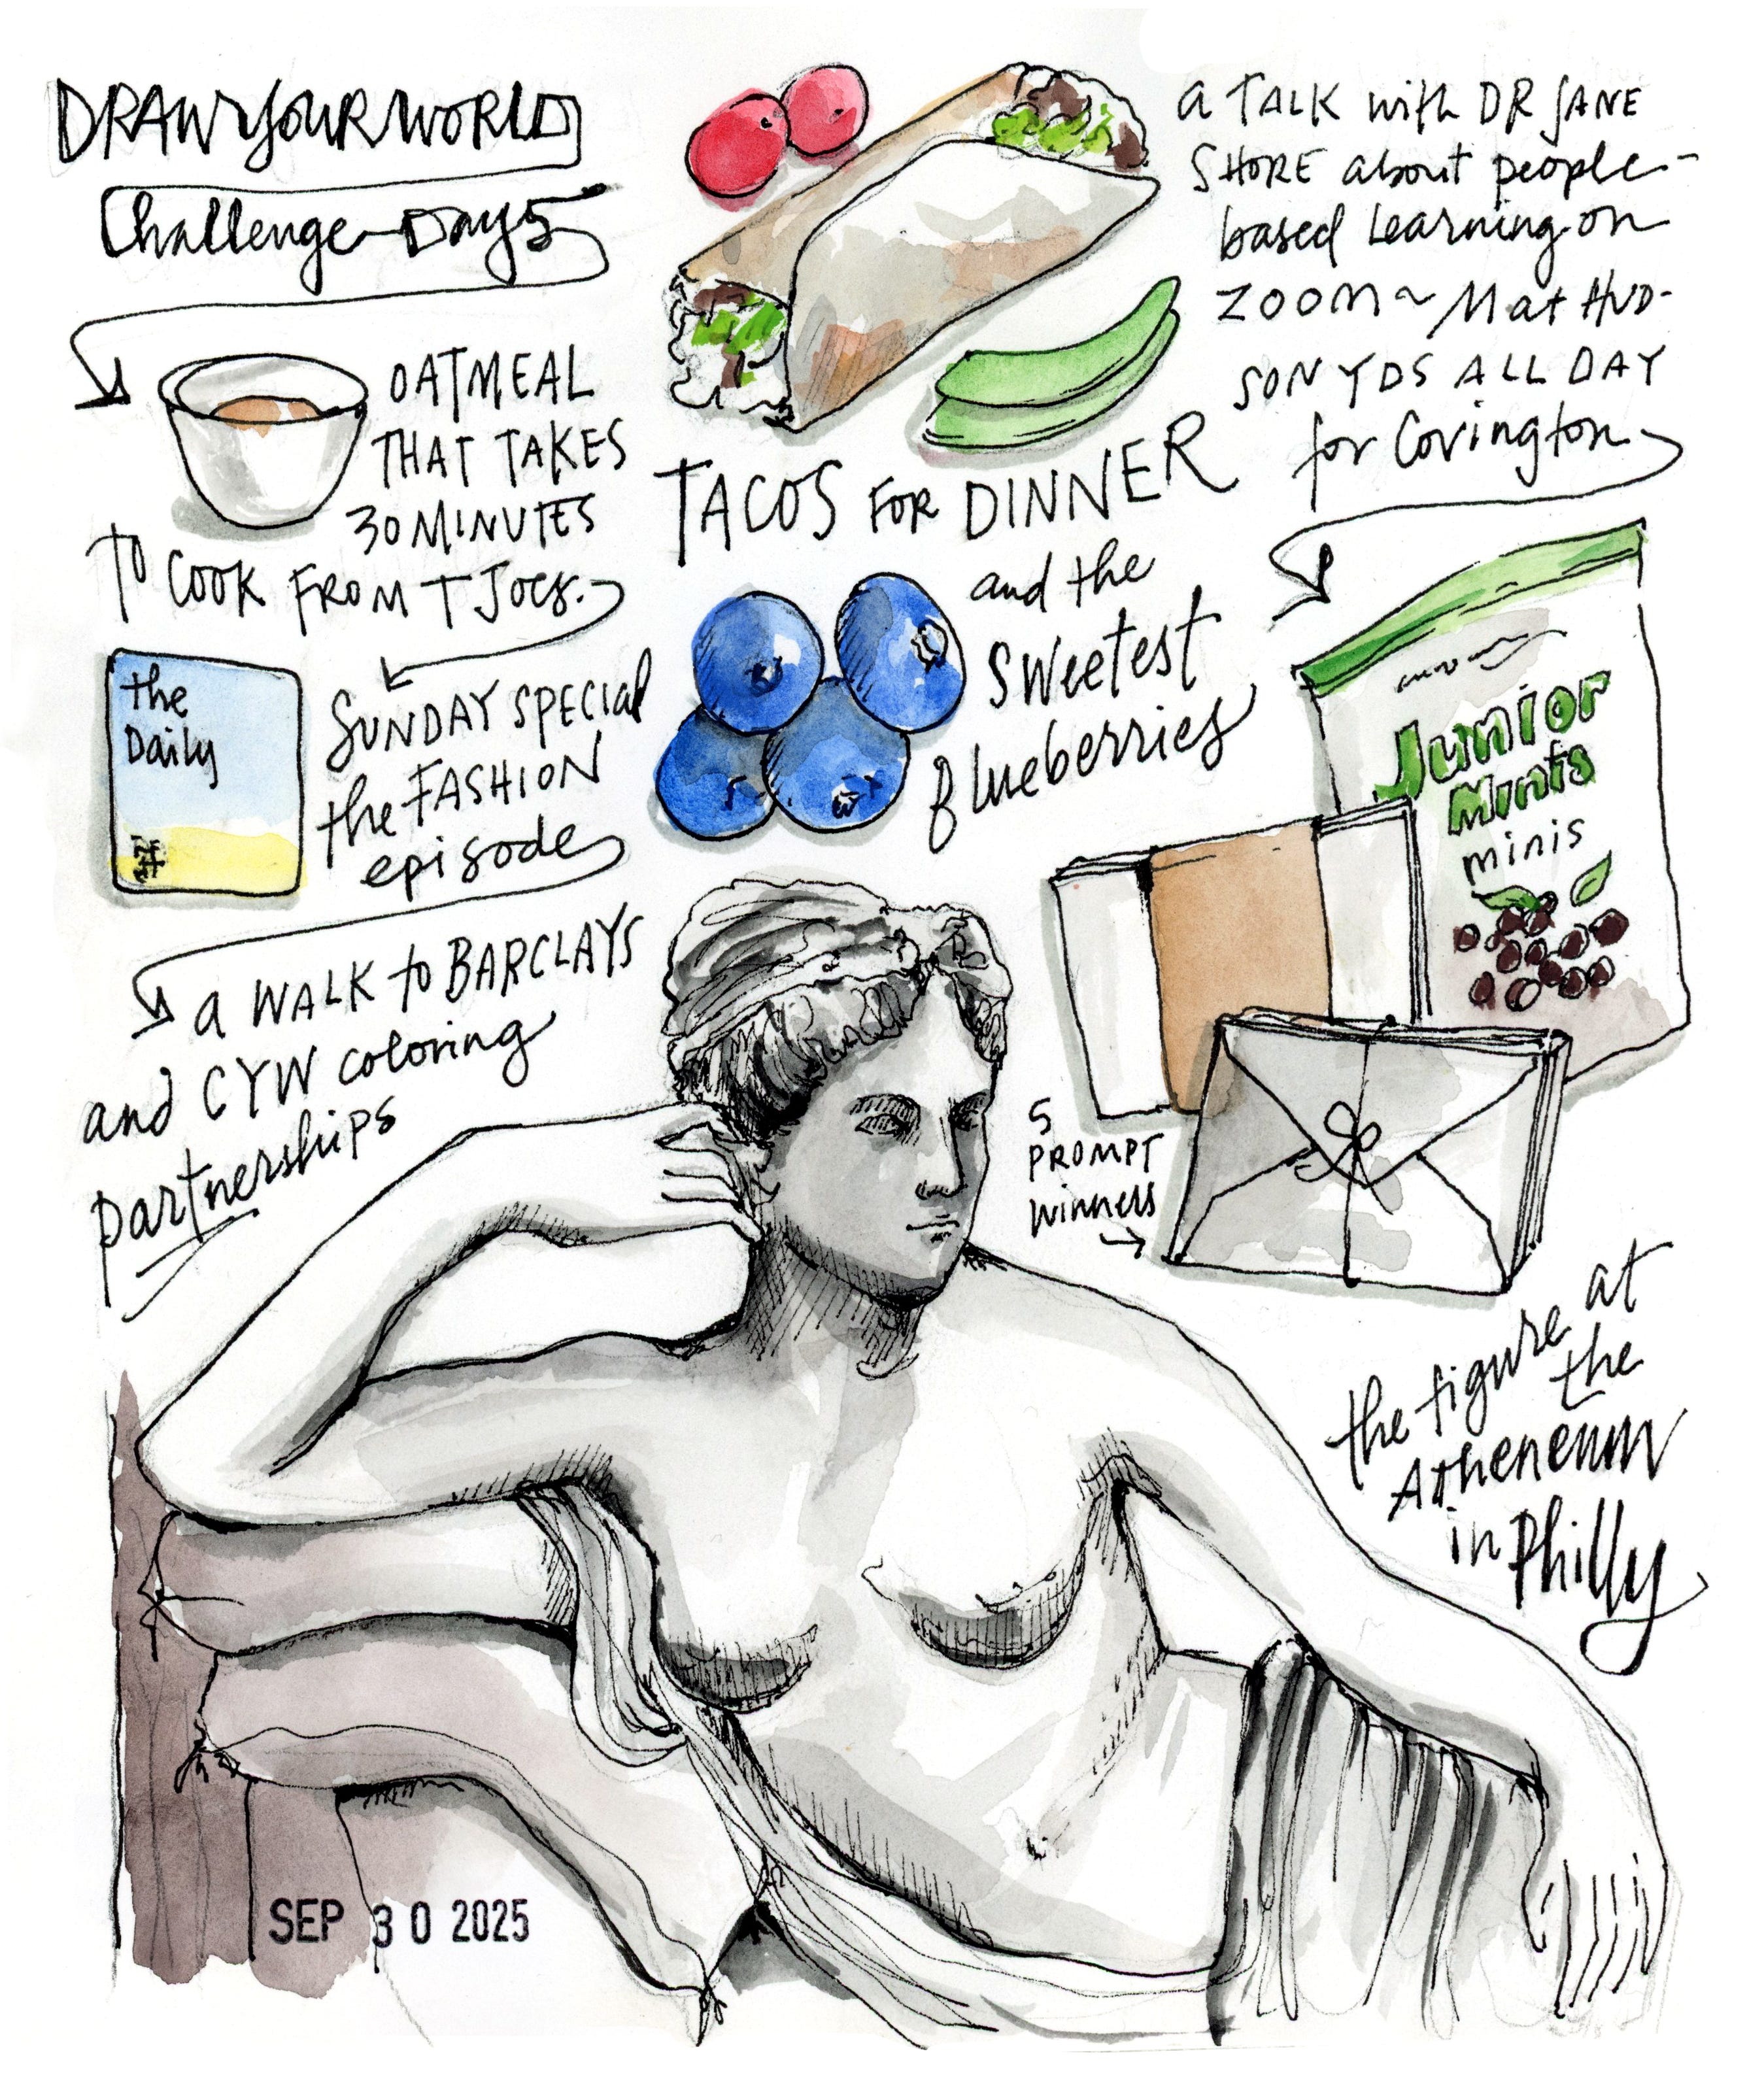 DRAW YOUR WORLD
Challenge Day 5
OATMEAL
THAT TAKES
30 MINUTES
TO COOK FROM T JOES.
the
Daily
SUNDAY SPECIAL
the FASHION
episode
a WALK to BARCLAYS
and CYW coloring
partnerships
TACOS FOR DINNER
and the
SWEETEST
Blueberries
a TALK with DR JANE
SHORE about people-
based learning on
ZOOM ~ Mat HUD-
SON YDS ALL DAY
for Covington
Junior
Mints
minis
5
PROMPT
winners
the figure at
the
Atheneum
in Philly
SEP 30 2025